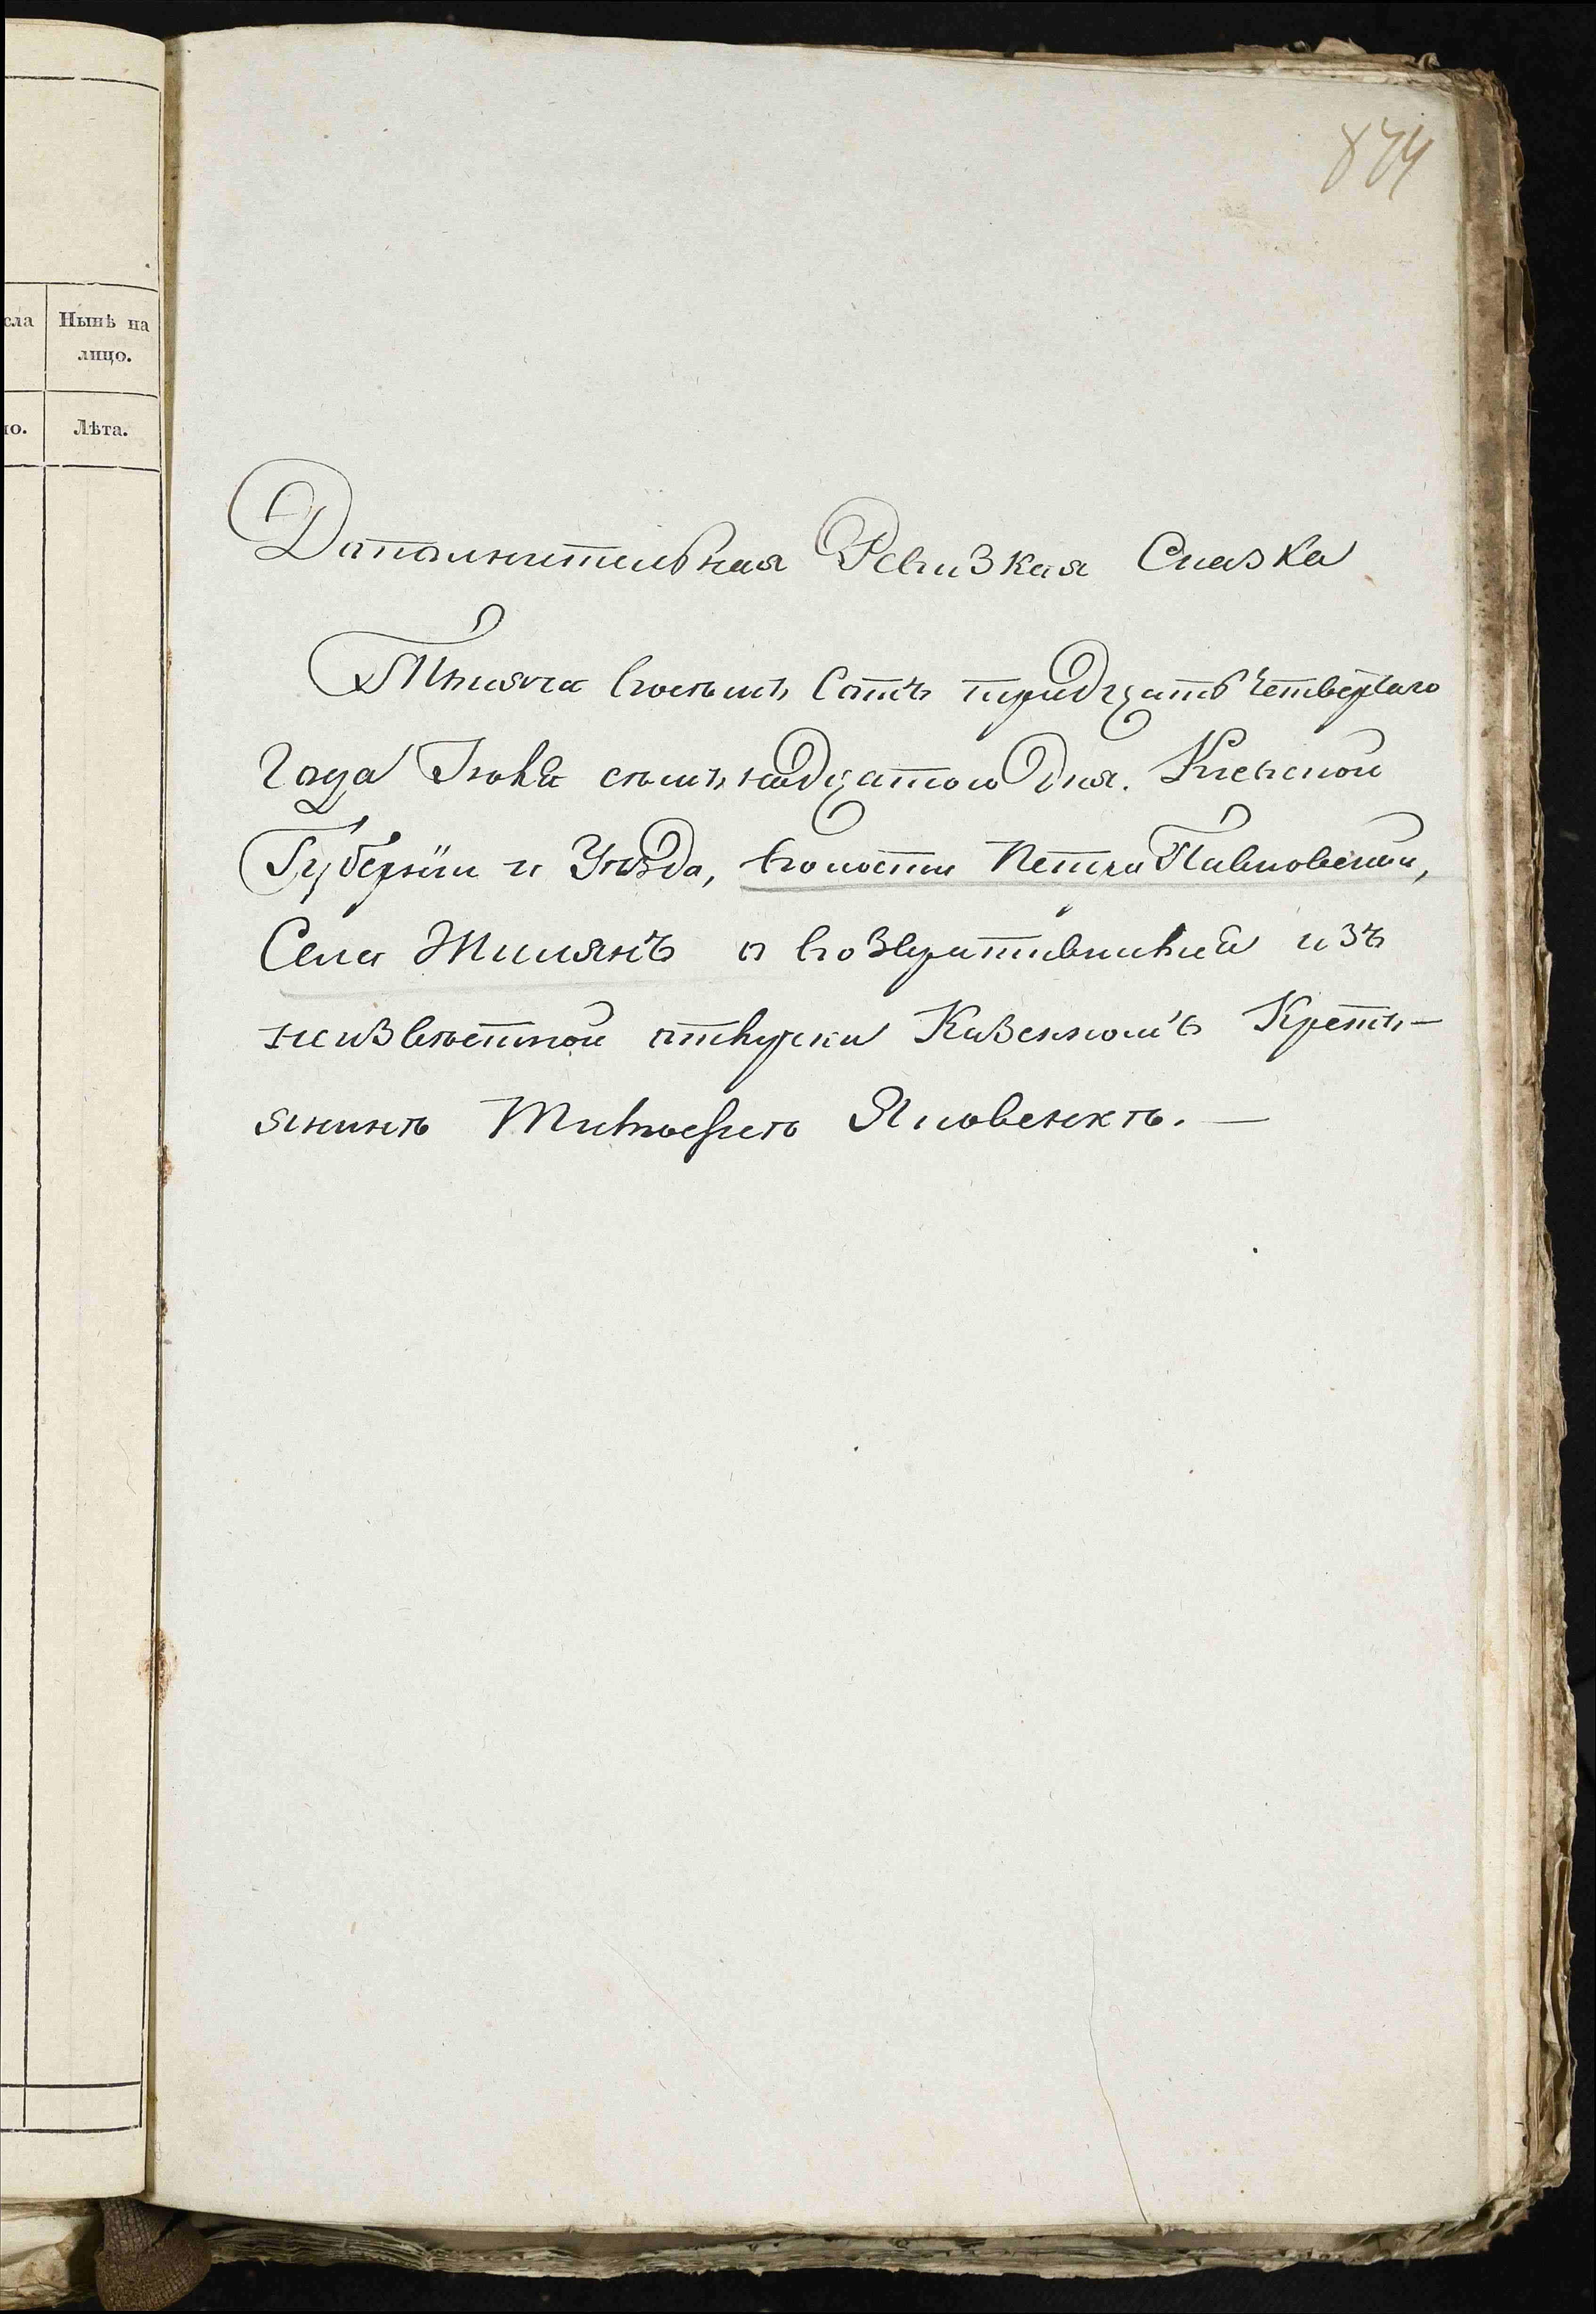 874
сла
Нынѣ на
лицо.
но.
Лѣта.
Дополнительная Ревизкая Сказка
Тысяча восемь сотъ тридцать четвертаго
Года Іюня семьнадцатого дня. Кіевской
Губерніи и Уѣзда, волости Петро Павловской,
Села Жилянъ о возвратившися изъ
неизвестной отлучки Казенномъ Кресть–
янинѣ Яковенкѣ. —